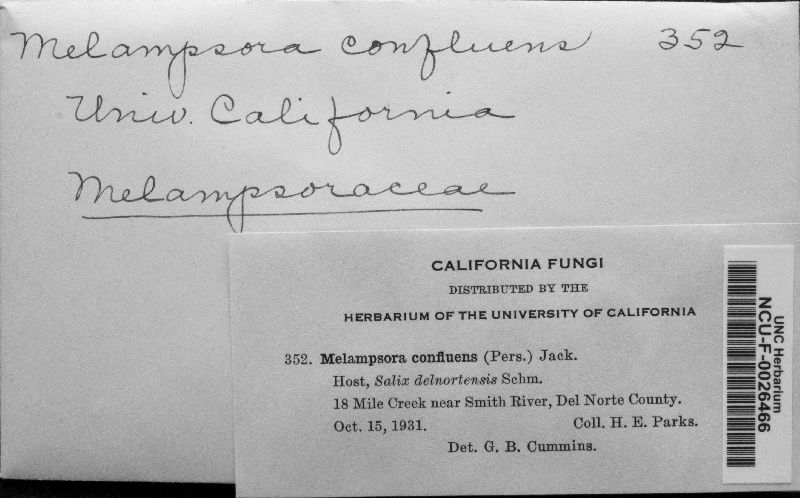 Melampsora confluens 352
Univ. California
Melampsoraceae
CALIFORNIA FUNGI
DISTRIBUTED BY THE
HERBARIUM OF THE UNIVERSITY OF CALIFORNIA
352. Melampsora confluens (Pers.) Jack.
Host, Salix delnortensis Schm.
18 Mile Creek near Smith River, Del Norte County.
Oct. 15, 1931. Coll. H. E. Parks.
Det. G. B. Cummins.
UNC Herbarium
NCU-F-0026466